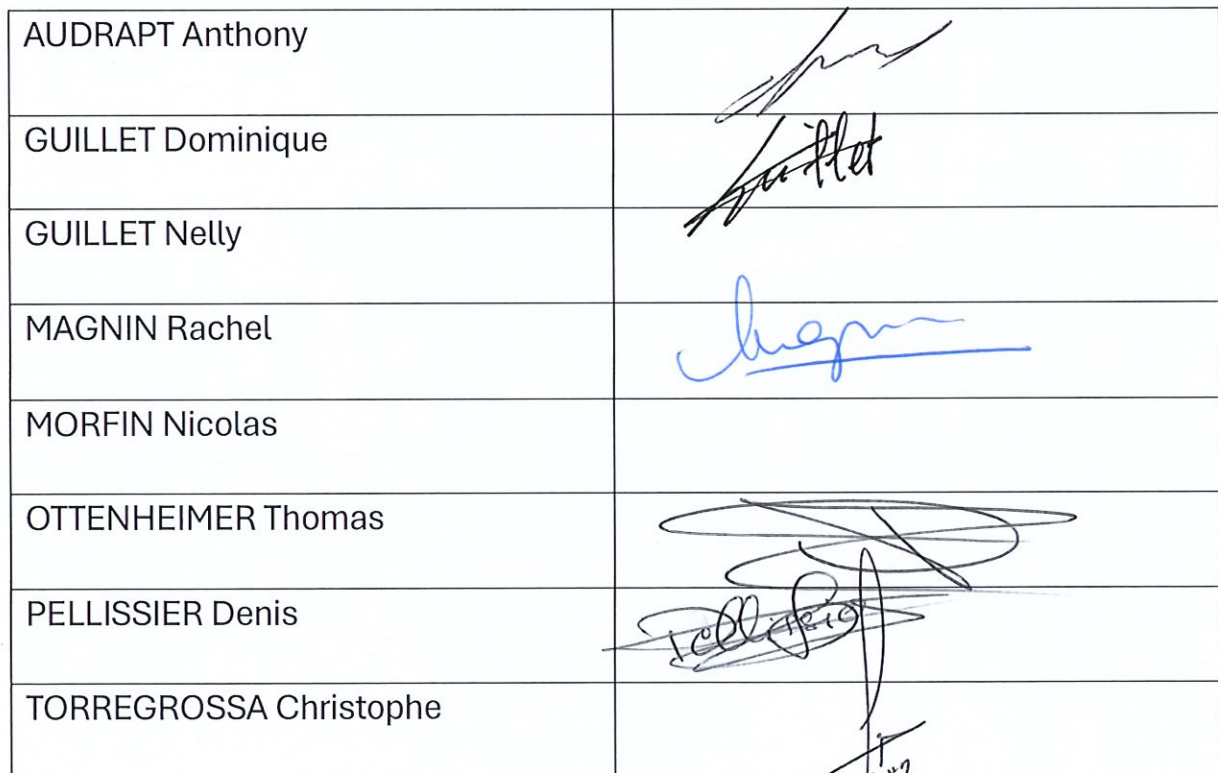 AUDRAPT Anthony
GUILLET Dominique
Guillet
GUILLET Nelly
MAGNIN Rachel
Magnin
MORFIN Nicolas
OTTENHEIMER Thomas
PELLISSIER Denis
Pellissier
TORREGROSSA Christophe